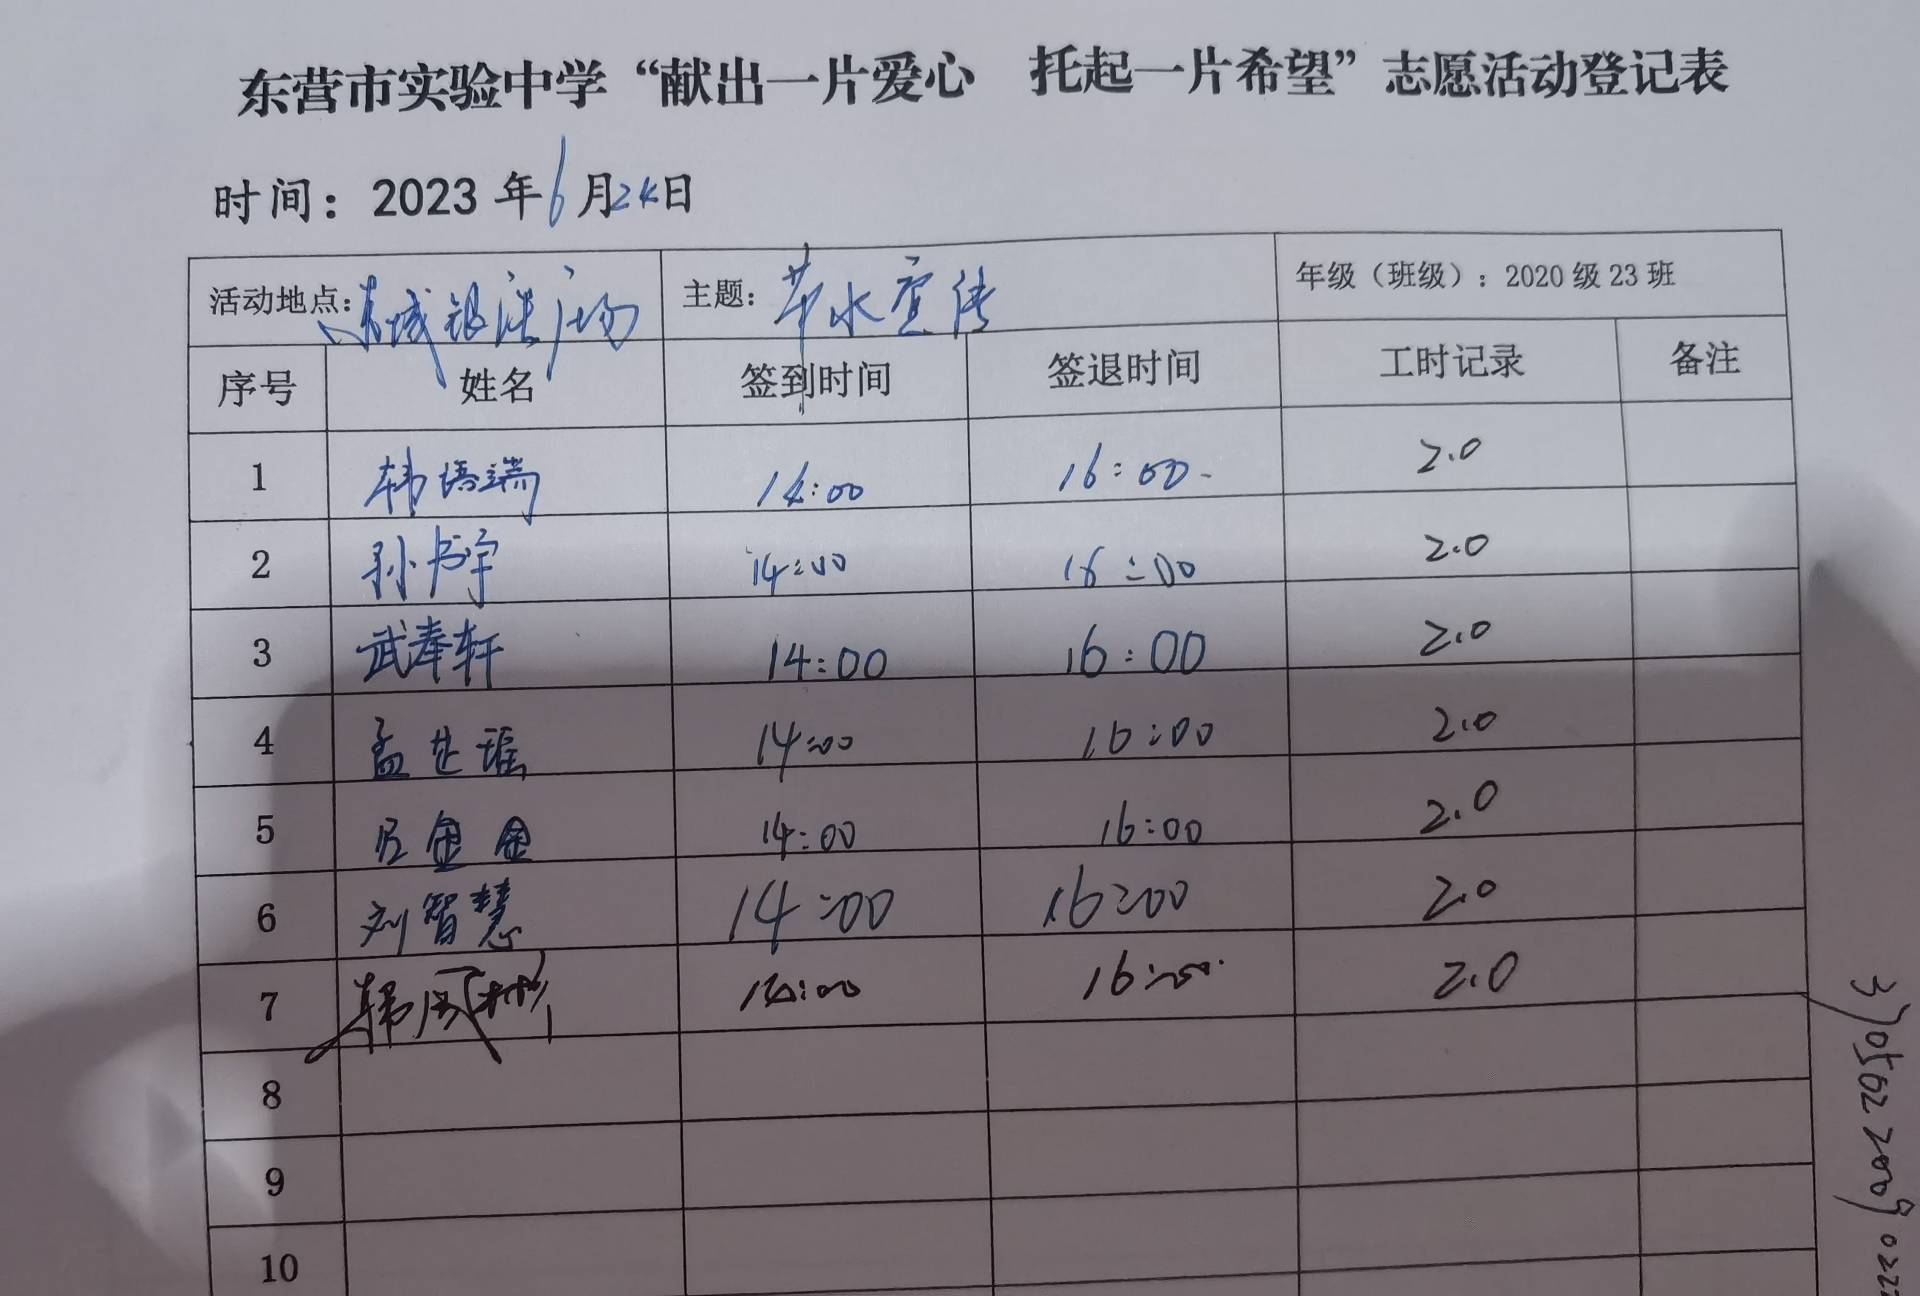 东营市实验中学“献出一片爱心 托起一片希望”志愿活动登记表
时间：2023年6月24日
活动地点：东城银座广场 主题：节水宣传 年级（班级）：2020级23班
序号 姓名 签到时间 签退时间 工时记录 备注
1 韩语端 14:00 16:00 2.0
2 孙书宇 14:00 16:00 2.0
3 武奉轩 14:00 16:00 2.0
4 孟芷瑶 14:00 16:00 2.0
5 14:00 16:00 2.0
6 刘智慧 14:00 16:00 2.0
7 韩风彬 14:00 16:00 2.0
8
9
10